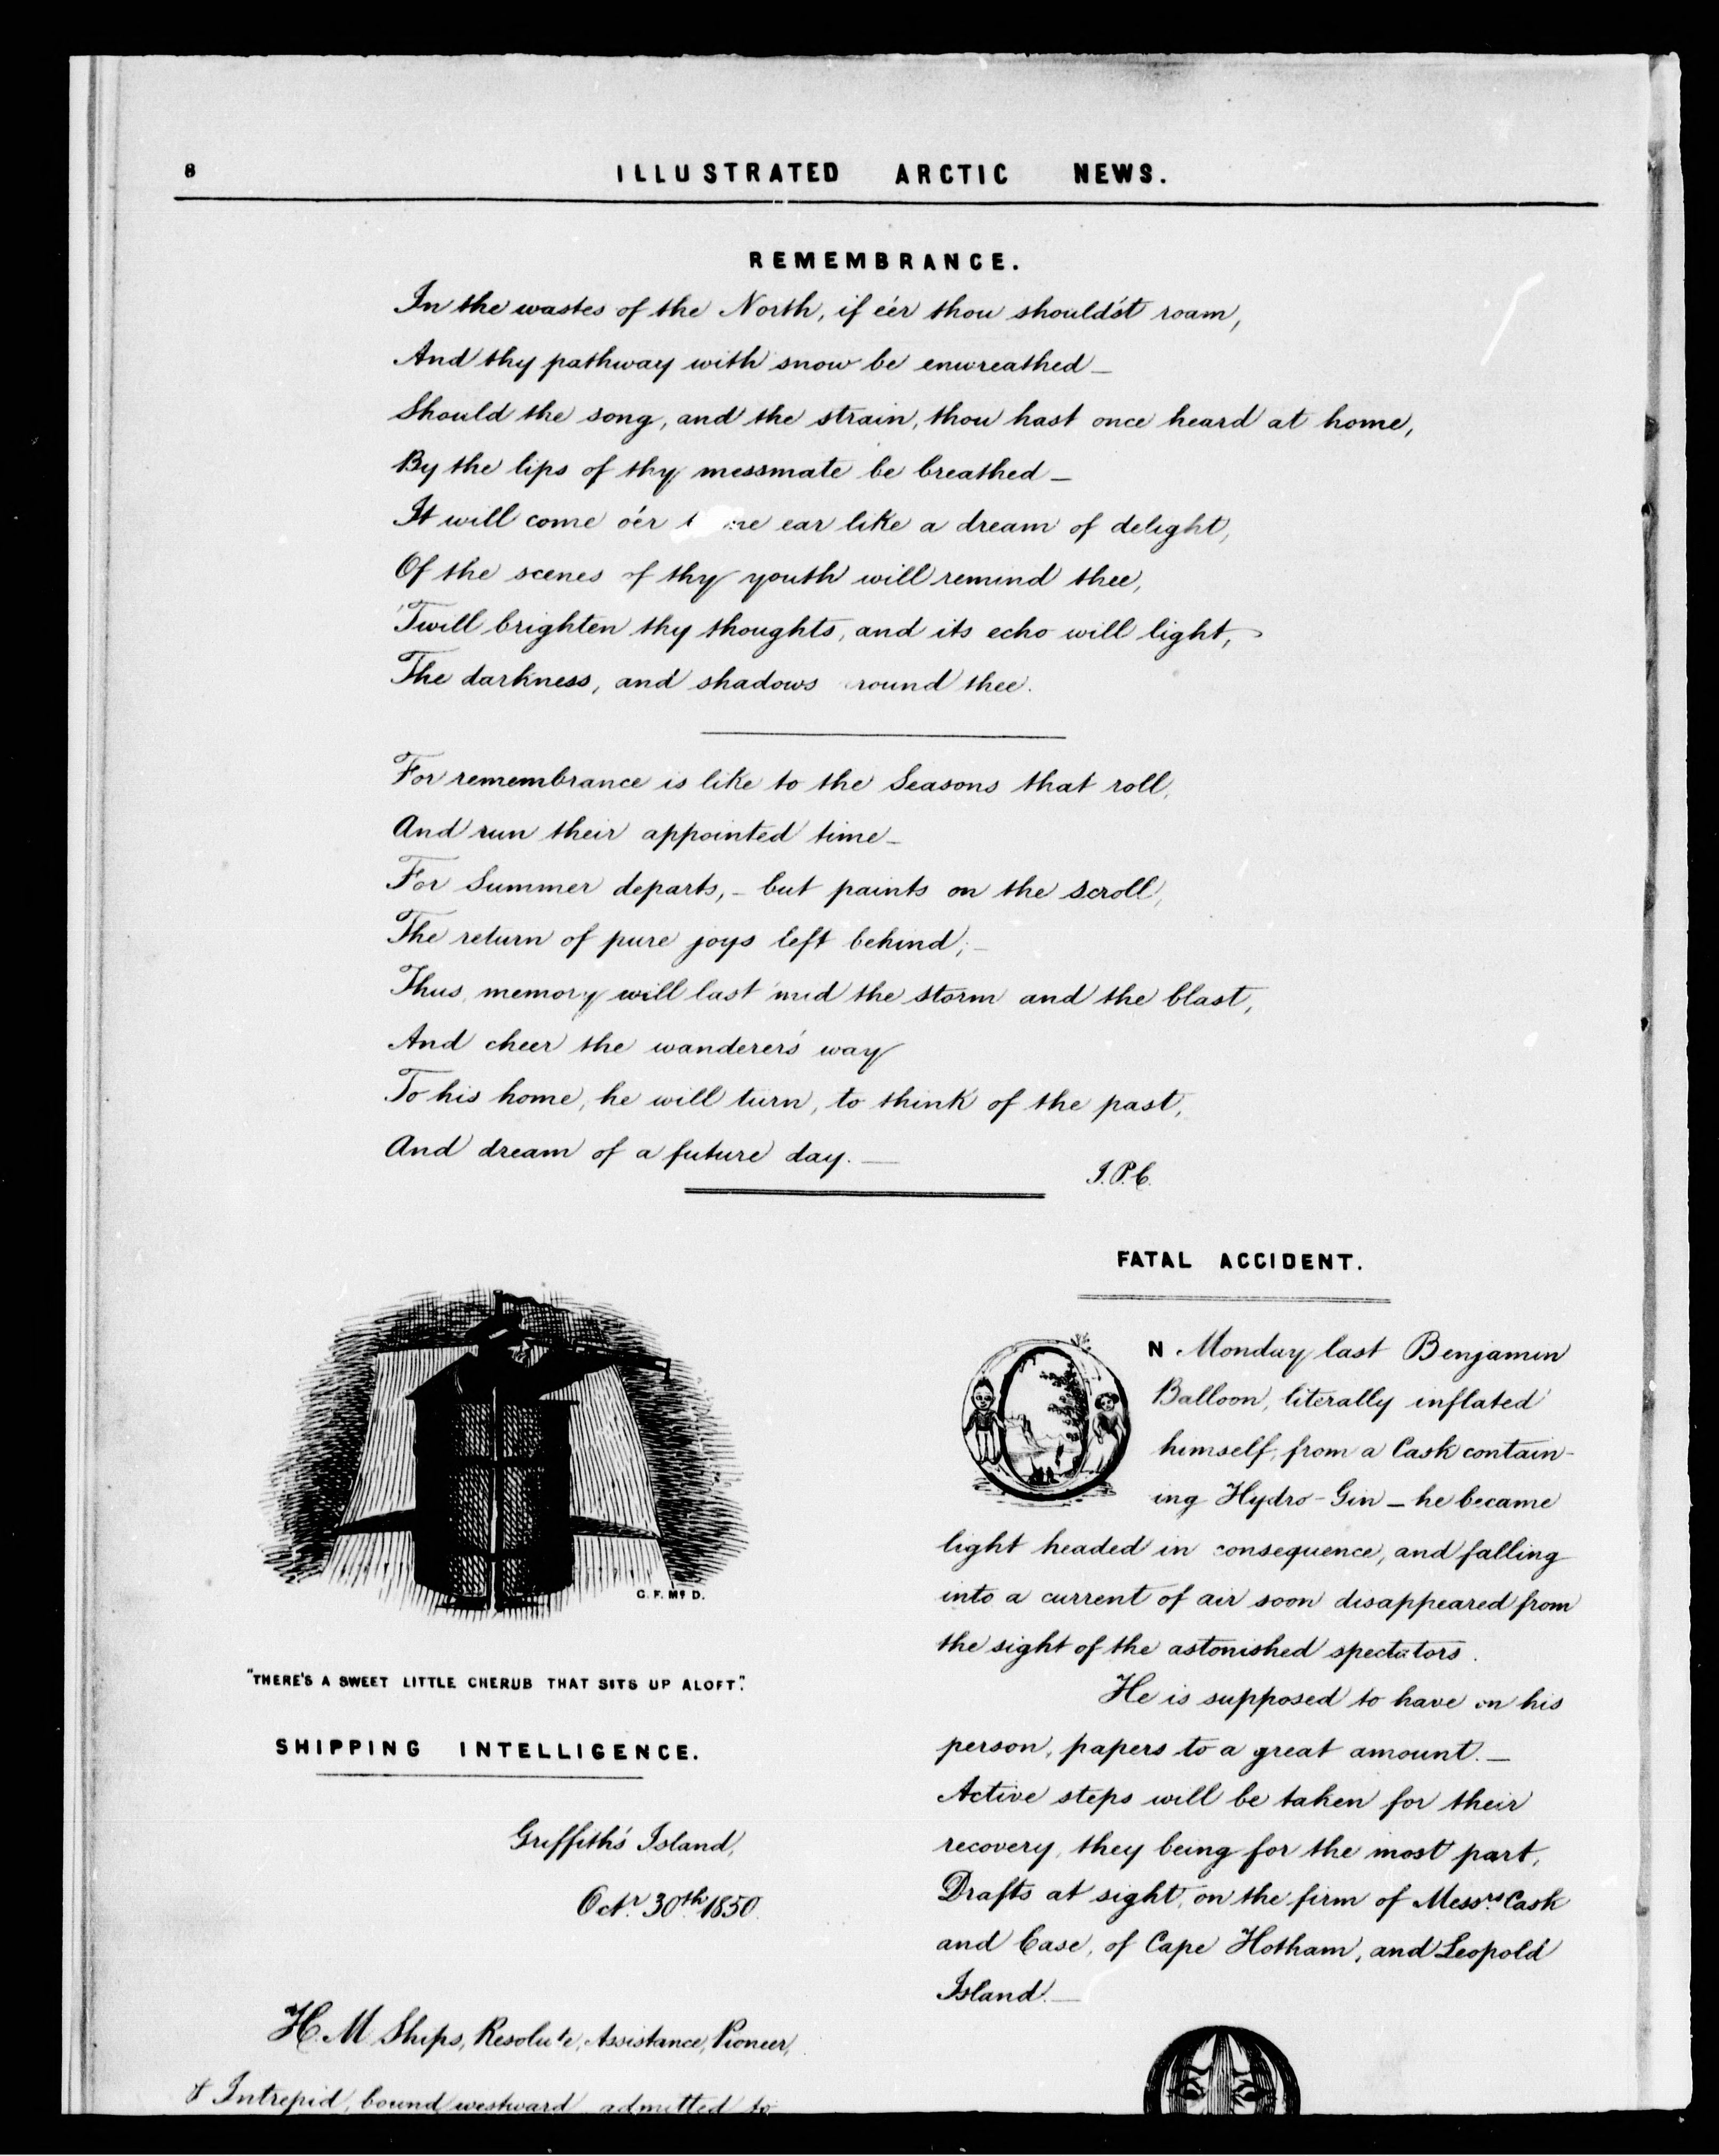 8
ILLUSTRATED ARCTIC NEWS.
REMEMBRANCE.
In the wastes of the North, if e'er thou should'st roam,
And thy pathway with snow be enwreathed —
Should the song, and the strain, thou hast once heard at home,
By the lips of thy messmate be breathed —
It will come o'er ear like a dream of delight,
Of the scenes of thy youth will remind thee,
'Twill brighten thy thoughts, and its echo will light,
The darkness, and shadows round thee.
For remembrance is like to the Seasons that roll,
And run their appointed time —
For Summer departs, – but paints on the scroll,
The return of pure joys left behind; –
Thus, memory will last 'mid the storm and the blast,
And cheer the wanderer's way
To his home, he will turn, to think of the past,
And dream of a future day. —
J.P.C.
G. F. Mc D.
"THERE'S A SWEET LITTLE CHERUB THAT SITS UP ALOFT".
SHIPPING INTELLIGENCE.
Griffith's Island,
Octr. 30th. 1850.
H. M Ships, Resolute, Assistance, Pioneer,
& Intrepid, bound westward admitted to
FATAL ACCIDENT.
ON Monday last Benjamin
Balloon, literally inflated
himself, from a Cask contain-
ing Hydro-Gin – he became
light headed in consequence, and falling
into a current of air soon disappeared from
the sight of the astonished spectators.
He is supposed to have on his
person, papers to a great amount. —
Active steps will be taken for their
recovery, they being for the most part,
Drafts at sight, on the firm of Messrs. Cask
and Case, of Cape Hotham, and Leopold
Island. —